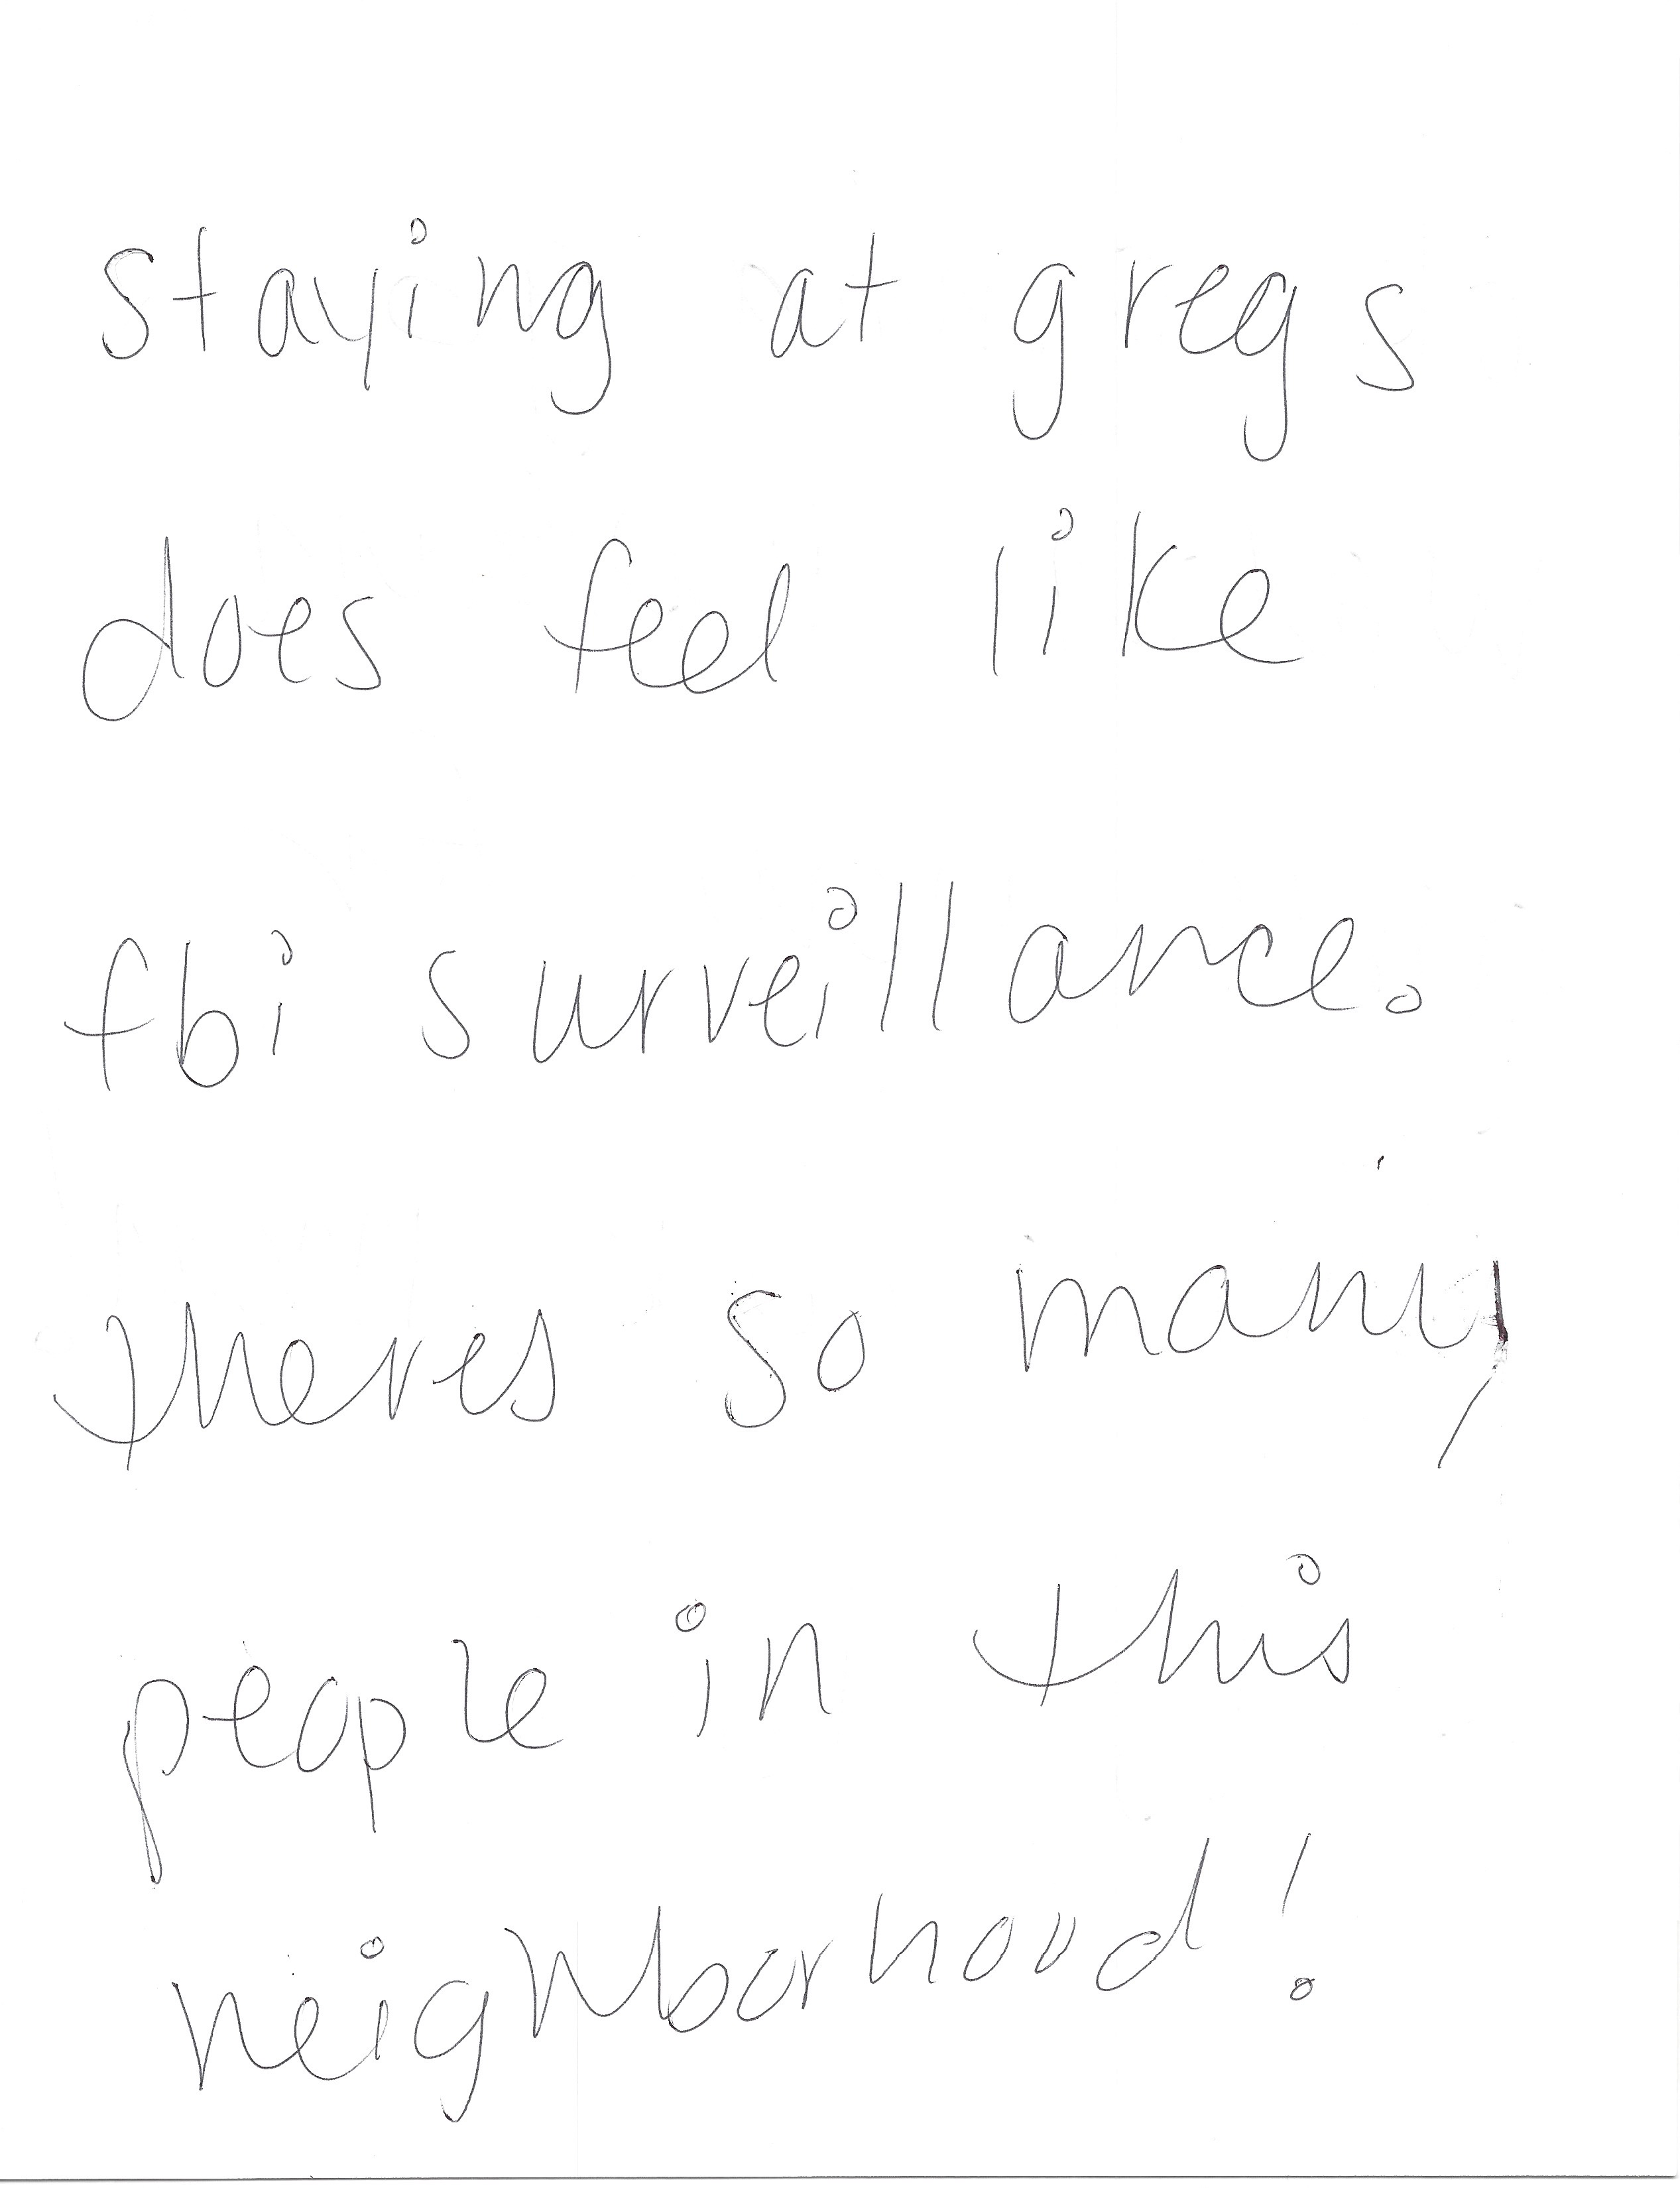 staying at gregs
does feel like
fbi surveillance.
theres so many
people in this
neighborhood!